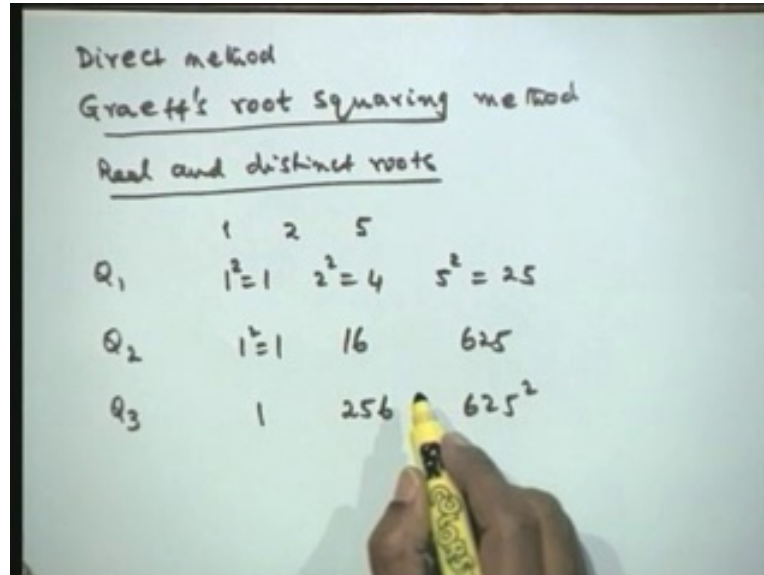 Direct method
Graeff's root squaring method
Real and distinct roots
1 2 5
Q₁ 1² = 1 2² = 4 5² = 25
Q₂ 1² = 1 16 625
Q₃ 1 256 625²